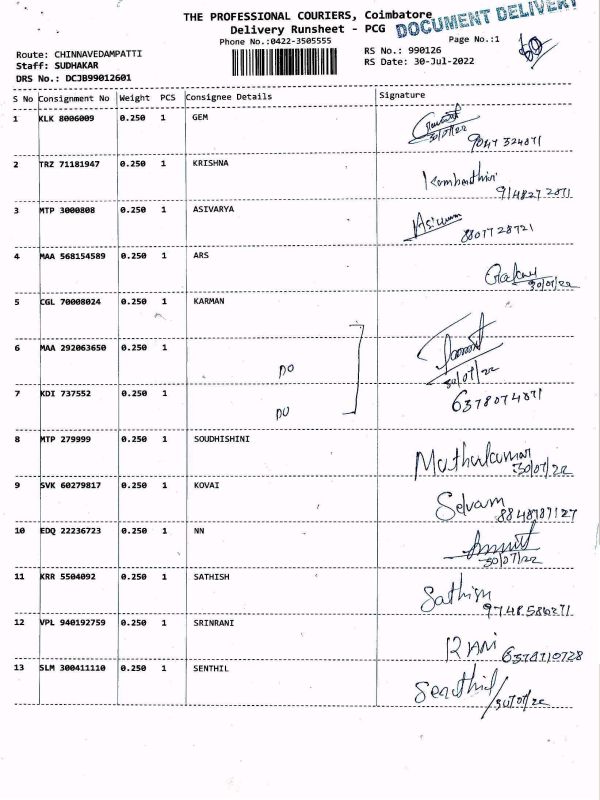 THE PROFESSIONAL COURIERS, Coimbatore
DOCUMENT DELIVERY
Delivery Runsheet - PCG
Page No.:1
Phone No.:0422-3505555
Route: CHINNAVEDAMPATTI
RS No.: 990126
Staff: SUDHAKAR
RS Date: 30-Jul-2022
DRS No.: DCJB99012601
S No Consignment No Weight PCS Consignee Details Signature
1 KLK 8006009 0.250 1 GEM
30/07/22
9047 324071
2 TRZ 71181947 0.250 1 KRISHNA
9148272871
3 MTP 3000808 0.250 1 ASIVARYA
8807728721
4 MAA 568154589 0.250 1 ARS
30/07/22
5 CGL 70008024 0.250 1 KARMAN
6 MAA 292063650 0.250 1 DO
30/07/22
7 KDI 737552 0.250 1 DO
6378074071
8 MTP 279999 0.250 1 SOUDHISHINI Muthukumar
30/07/22
9 SVK 60279817 0.250 1 KOVAI Selvam
8848787127
10 EDQ 22236723 0.250 1 NN
30/07/22
11 KRR 5504092 0.250 1 SATHISH Sathish
9748586271
12 VPL 940192759 0.250 1 SRINRANI RANI
6378710728
13 SLM 300411110 0.250 1 SENTHIL Senthil
30/07/22